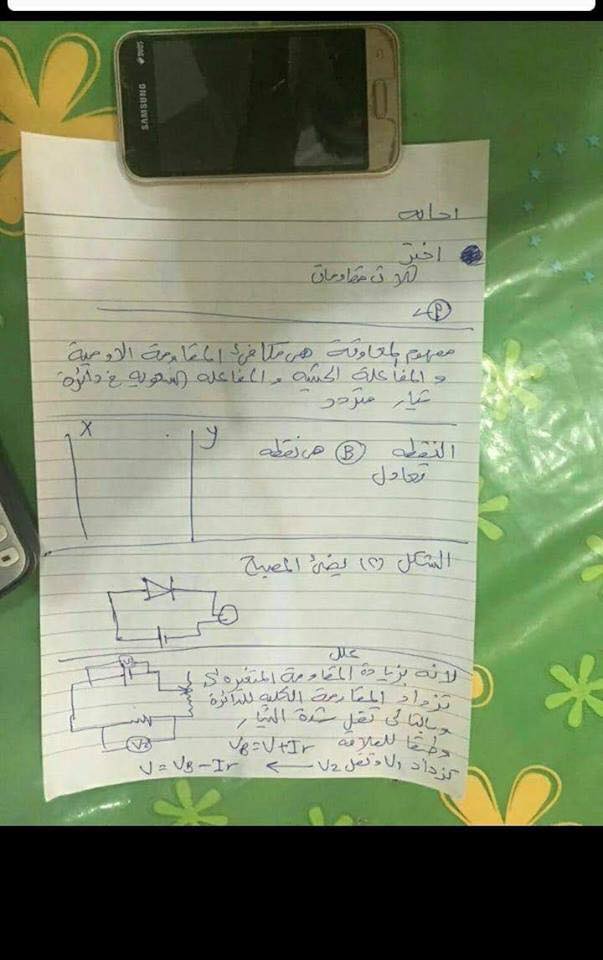 SAMSUNG
DUOS
اجابه
اختر
ثلاث مقاومات
P
مفهوم المعاوقة هى مكافئ المقاومة الاومية
و المفاعلة الحثية و المفاعله السعويه فى دائرة
تيار متردد
X
y
النقطه B هى نقطه
تعادل
الشكل (٢) يضئ المصباح
علل
لانه بزيادة المقاومة المتغيره S
تزداد المقاومة الكليه للدائرة
وبالتالى تقل شدة التيار
وطبقا للعلاقه VB = V + Ir
تزداد V1 وتقل V2 ← V = VB - Ir
V2